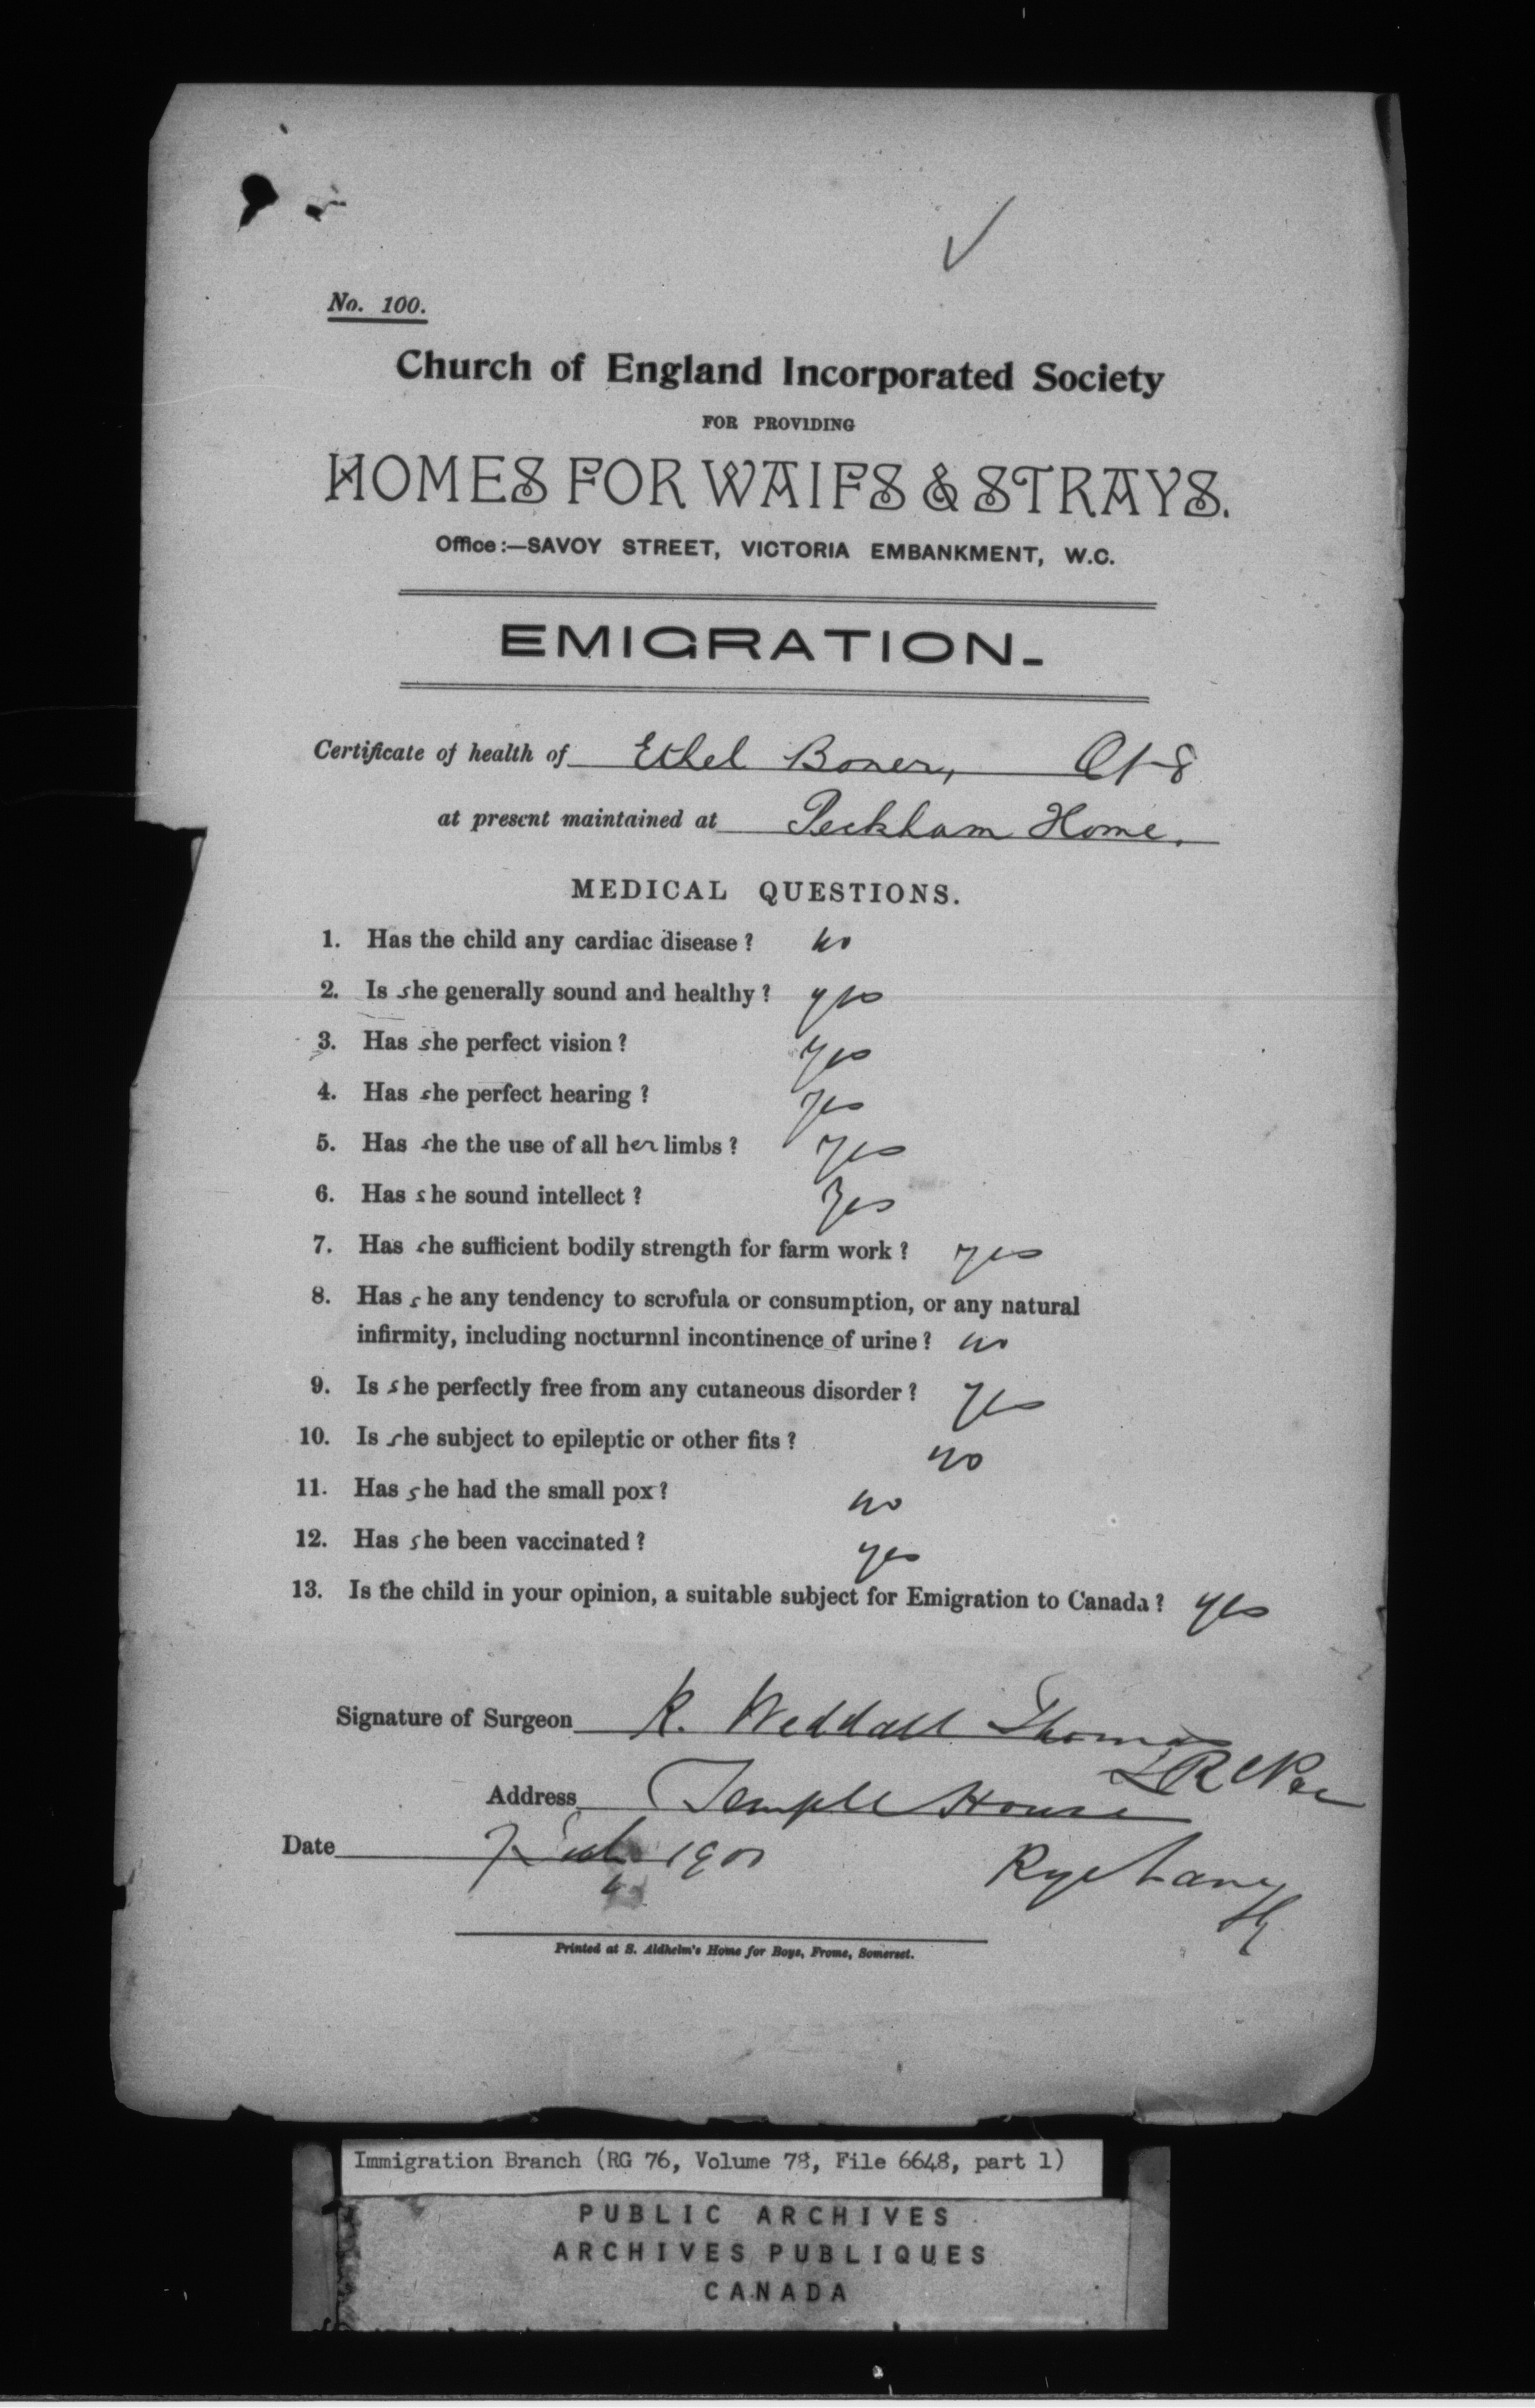 No. 100.
Church of England Incorporated Society
FOR PROVIDING
HOMES FOR WAIFS & STRAYS.
Office:—SAVOY STREET, VICTORIA EMBANKMENT, W.C.
EMIGRATION-
Certificate of health of Ethel Boner,
at present maintained at Peckham Home.
MEDICAL QUESTIONS.
1. Has the child any cardiac disease? no
2. Is she generally sound and healthy? yes
3. Has she perfect vision? yes
4. Has she perfect hearing? yes
5. Has she the use of all her limbs? yes
6. Has she sound intellect? Yes
7. Has she sufficient bodily strength for farm work? yes
8. Has she any tendency to scrofula or consumption, or any natural
infirmity, including nocturnnl incontinence of urine? no
9. Is she perfectly free from any cutaneous disorder? yes
10. Is she subject to epileptic or other fits? no
11. Has she had the small pox? no
12. Has she been vaccinated? yes
13. Is the child in your opinion, a suitable subject for Emigration to Canada? yes
Signature of Surgeon K. Weddall Thomas
Address Temple House
Date 190
Rye Lane
Printed at S. Aldhelm's Home for Boys, Frome, Somerset.
Immigration Branch (RG 76, Volume 78, File 6648, part 1)
PUBLIC ARCHIVES
ARCHIVES PUBLIQUES
CANADA